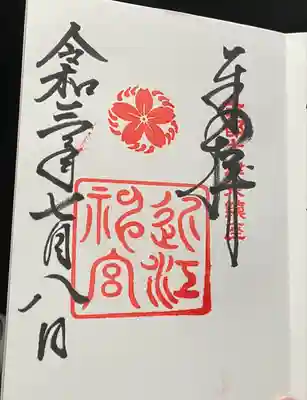 奉拝
近江
神宮
令和三年七月八日